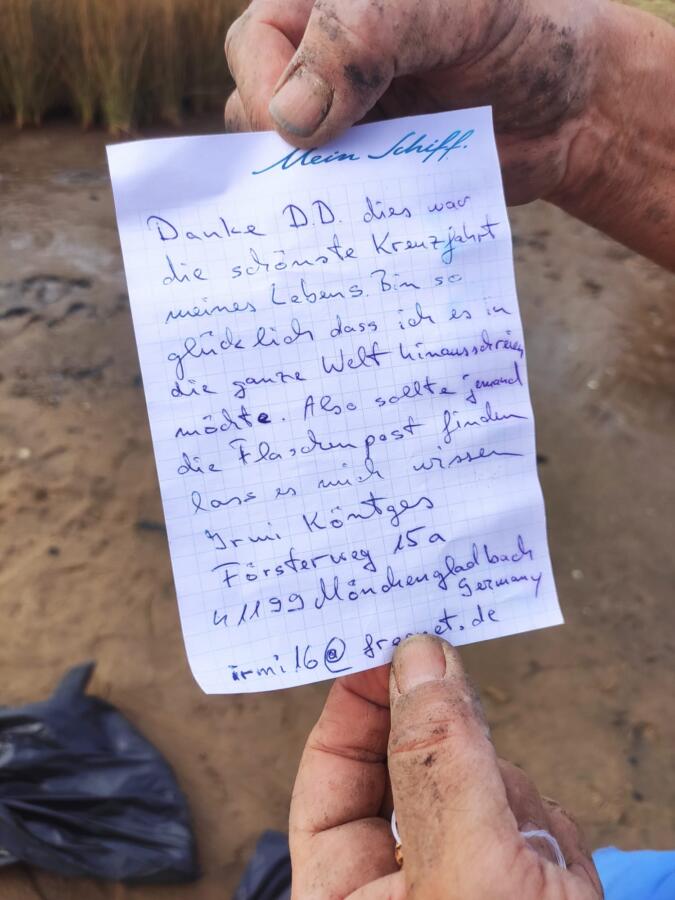 Mein Schiff.
Danke D.D. dies war
die schönste Kreuzfahrt
meines Lebens. Bin so
glücklich dass ich es in
die ganze Welt hinausschreien
möchte. Also sollte jemand
die Flaschenpost finden
lass es mich wissen
Irmi Köntges
Försterweg 15a
41199 Mönchengladbach
Germany
irmi16@ .de